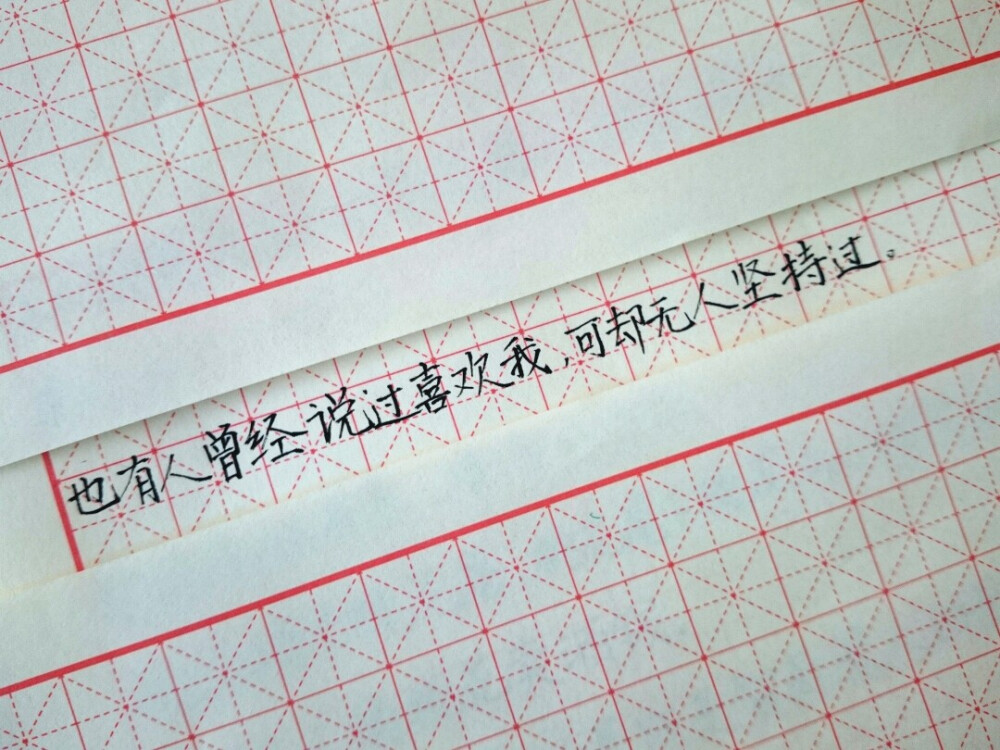 也有人曾经说过喜欢我,可却无人坚持过。